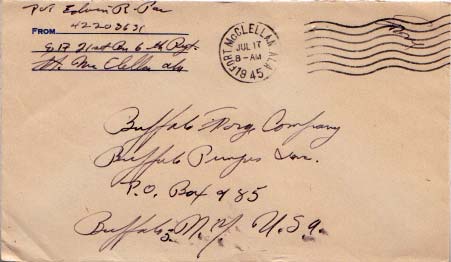 Pvt. Edwin R.
42203631
FROM
Ft. Mc Clellan Ala
FORT McCLELLAN ALA.
JUL 17
8-AM
1945
Free
Buffalo Forge Company
Buffalo Pumps Inc.
P.O. Box 985
Buffalo, N.Y. U.S.A.